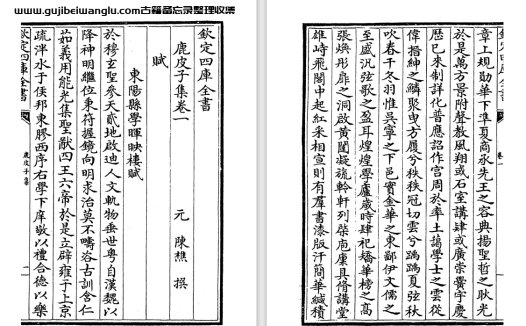 www.gujibeiwanglu.com古籍备忘录整理收集
欽定四庫全書
鹿皮子集卷一
元 陳樵 撰
賦
東陽縣學暉映樓賦
於穆玄聖參天貳地啟迪人文軌物垂世粵自漢魏以
降神明繼位秉符握鏡向明求治莫不疇咨古訓含仁
茹義用能光集聖猷四王六帝於是立辟雍于上京
疏泮水于侯邦東膠西序右學下庠敬以禮合德以樂
欽定四庫全書
鹿皮子集
章上規勛華下準夏商承先王之容典揚聖哲之耿光
於是萬方景附聲教風翔或石室講肄或廣崇黌宇慶
歴已來制詳化普應詔作宫周於率土藹學士之雲從
偉搢紳之鱗聚曳方履兮秩秩冠切雲兮蹌蹌夏弦秋
吹春干冬羽惟吳寧之下邑實金華之東鄙伊文儒之
至盛沨弦歌之盈耳煌煌學廬歲時肆祀矯華榜之高
張煥彤扉之洞啟黄閣凝旒軨軒列柴庖廩具脩講堂
雄峙飛閣中起紅采相宣則有羣書漆版汗簡華緘積